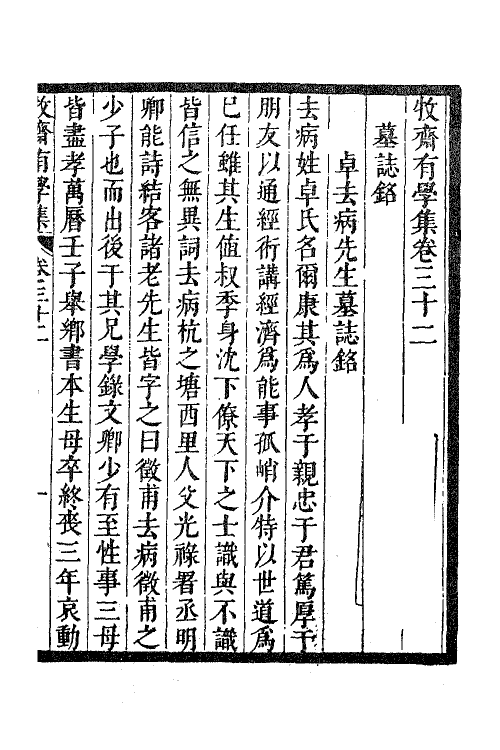 牧齋有學集卷三十二
墓誌銘
卓去病先生墓誌銘
去病姓卓氏名爾康其爲人孝于親忠于君篤厚于
朋友以通經術講經濟爲能事孤峭介特以世道爲
已任雖其生値叔季身沈下僚天下之士識與不識
皆信之無異詞去病杭之塘西里人父光祿署丞明
卿能詩結客諸老先生皆字之曰徵甫去病徵甫之
少子也而出後于其兄學錄文卿少有至性事三母
皆盡孝萬曆壬子舉鄉書本生母卒終喪三年哀動
牧齋有學集 卷三十二 一